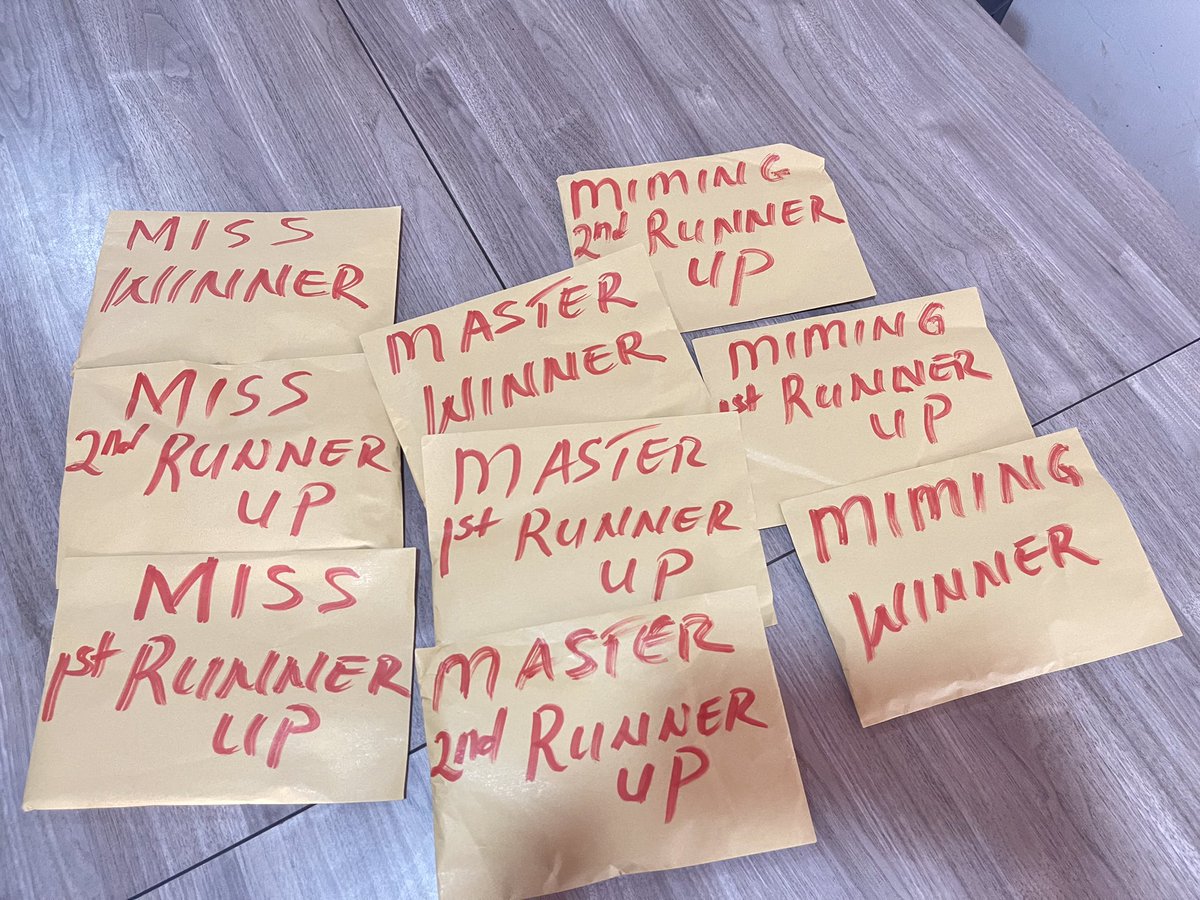 MISS
WINNER
MISS
2nd RUNNER
UP
MISS
1st RUNNER
UP
MASTER
WINNER
MASTER
1st RUNNER
UP
MASTER
2nd RUNNER
UP
MIMING
2nd RUNNER
UP
MIMING
1st RUNNER
UP
MIMING
WINNER